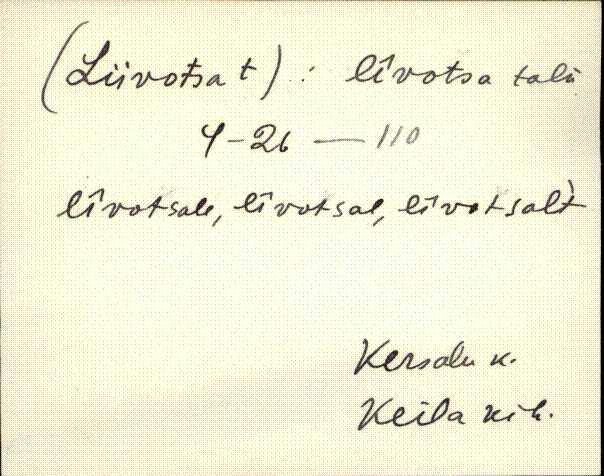 (Liivotsa t) : lîvotsa talu
4-26 — 110
lîvotsale, lîvotsal, lîvotsalt
Kersalu k.
Keila kih.